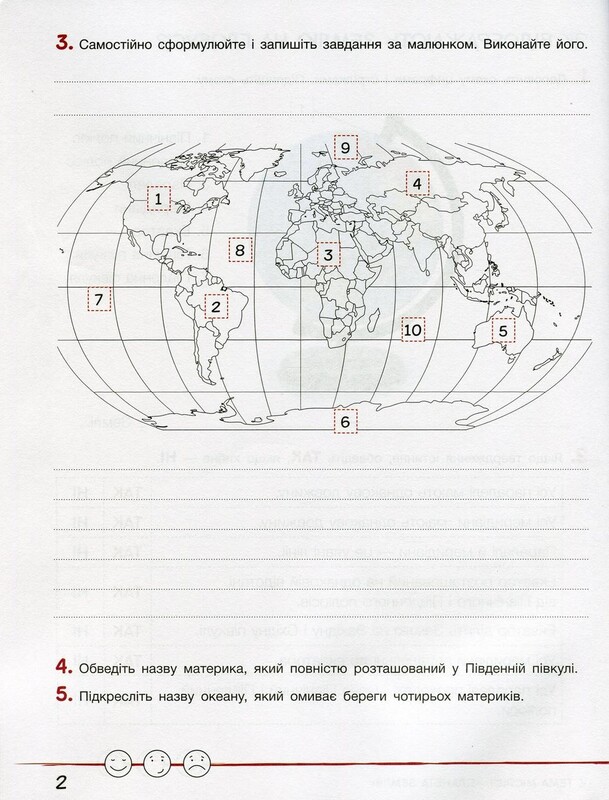 3. Самостійно сформулюйте і запишіть завдання за малюнком. Виконайте його.
9
4
1
8
3
7
2
10
5
6
4. Обведіть назву материка, який повністю розташований у Південній півкулі.
5. Підкресліть назву океану, який омиває береги чотирьох материків.
2